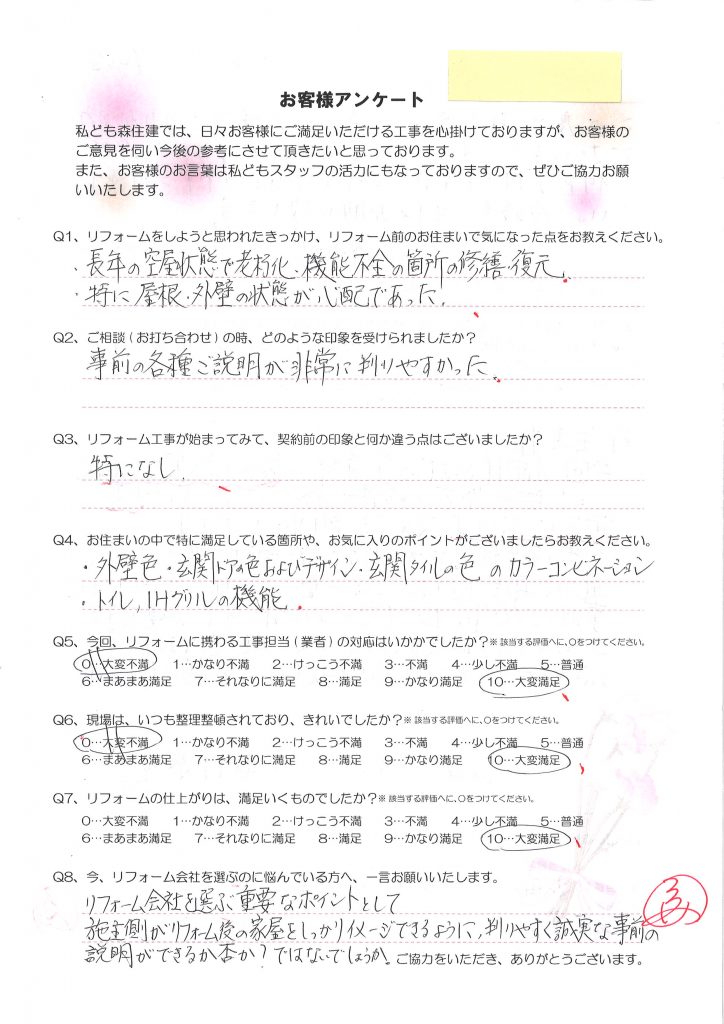 お客様アンケート
私ども森住建では、日々お客様にご満足いただける工事を心掛けておりますが、お客様の
ご意見を伺い今後の参考にさせて頂きたいと思っております。
また、お客様のお言葉は私どもスタッフの活力にもなっておりますので、ぜひご協力お願
いいたします。
Q1、リフォームをしようと思われたきっかけ、リフォーム前のお住まいで気になった点をお教えください。
・長年の空屋状態で老朽化、機能不全の箇所の修繕・復元。
・特に屋根・外壁の状態が心配であった。
Q2、ご相談(お打ち合わせ)の時、どのような印象を受けられましたか?
事前の各種ご説明が非常に判りやすかった。
Q3、リフォーム工事が始まってみて、契約前の印象と何か違う点はございましたか?
特になし。
Q4、お住まいの中で特に満足している箇所や、お気に入りのポイントがございましたらお教えください。
・外壁色・玄関ドアの色およびデザイン・玄関タイルの色 のカラーコンビネーション
・トイレ,IHグリルの機能。
Q5、今回、リフォームに携わる工事担当(業者)の対応はいかかでしたか?※該当する評価へに、○をつけてください。
0…大変不満 1…かなり不満 2…けっこう不満 3…不満 4…少し不満 5…普通
6…まあまあ満足 7…それなりに満足 8…満足 9…かなり満足 10…大変満足
Q6、現場は、いつも整理整頓されており、きれいでしたか?※該当する評価へに、○をつけてください。
0…大変不満 1…かなり不満 2…けっこう不満 3…不満 4…少し不満 5…普通
6…まあまあ満足 7…それなりに満足 8…満足 9…かなり満足 10…大変満足
Q7、リフォームの仕上がりは、満足いくものでしたか?※該当する評価へに、○をつけてください。
0…大変不満 1…かなり不満 2…けっこう不満 3…不満 4…少し不満 5…普通
6…まあまあ満足 7…それなりに満足 8…満足 9…かなり満足 10…大変満足
Q8、今、リフォーム会社を選ぶのに悩んでいる方へ、一言お願いいたします。
リフォーム会社を選ぶ重要なポイントとして
施主側がリフォーム後の家屋をしっかりイメージできるように,判りやすく誠実な事前の
説明ができるか否か?ではないでしょうか。
ご協力をいただき、ありがとうございます。